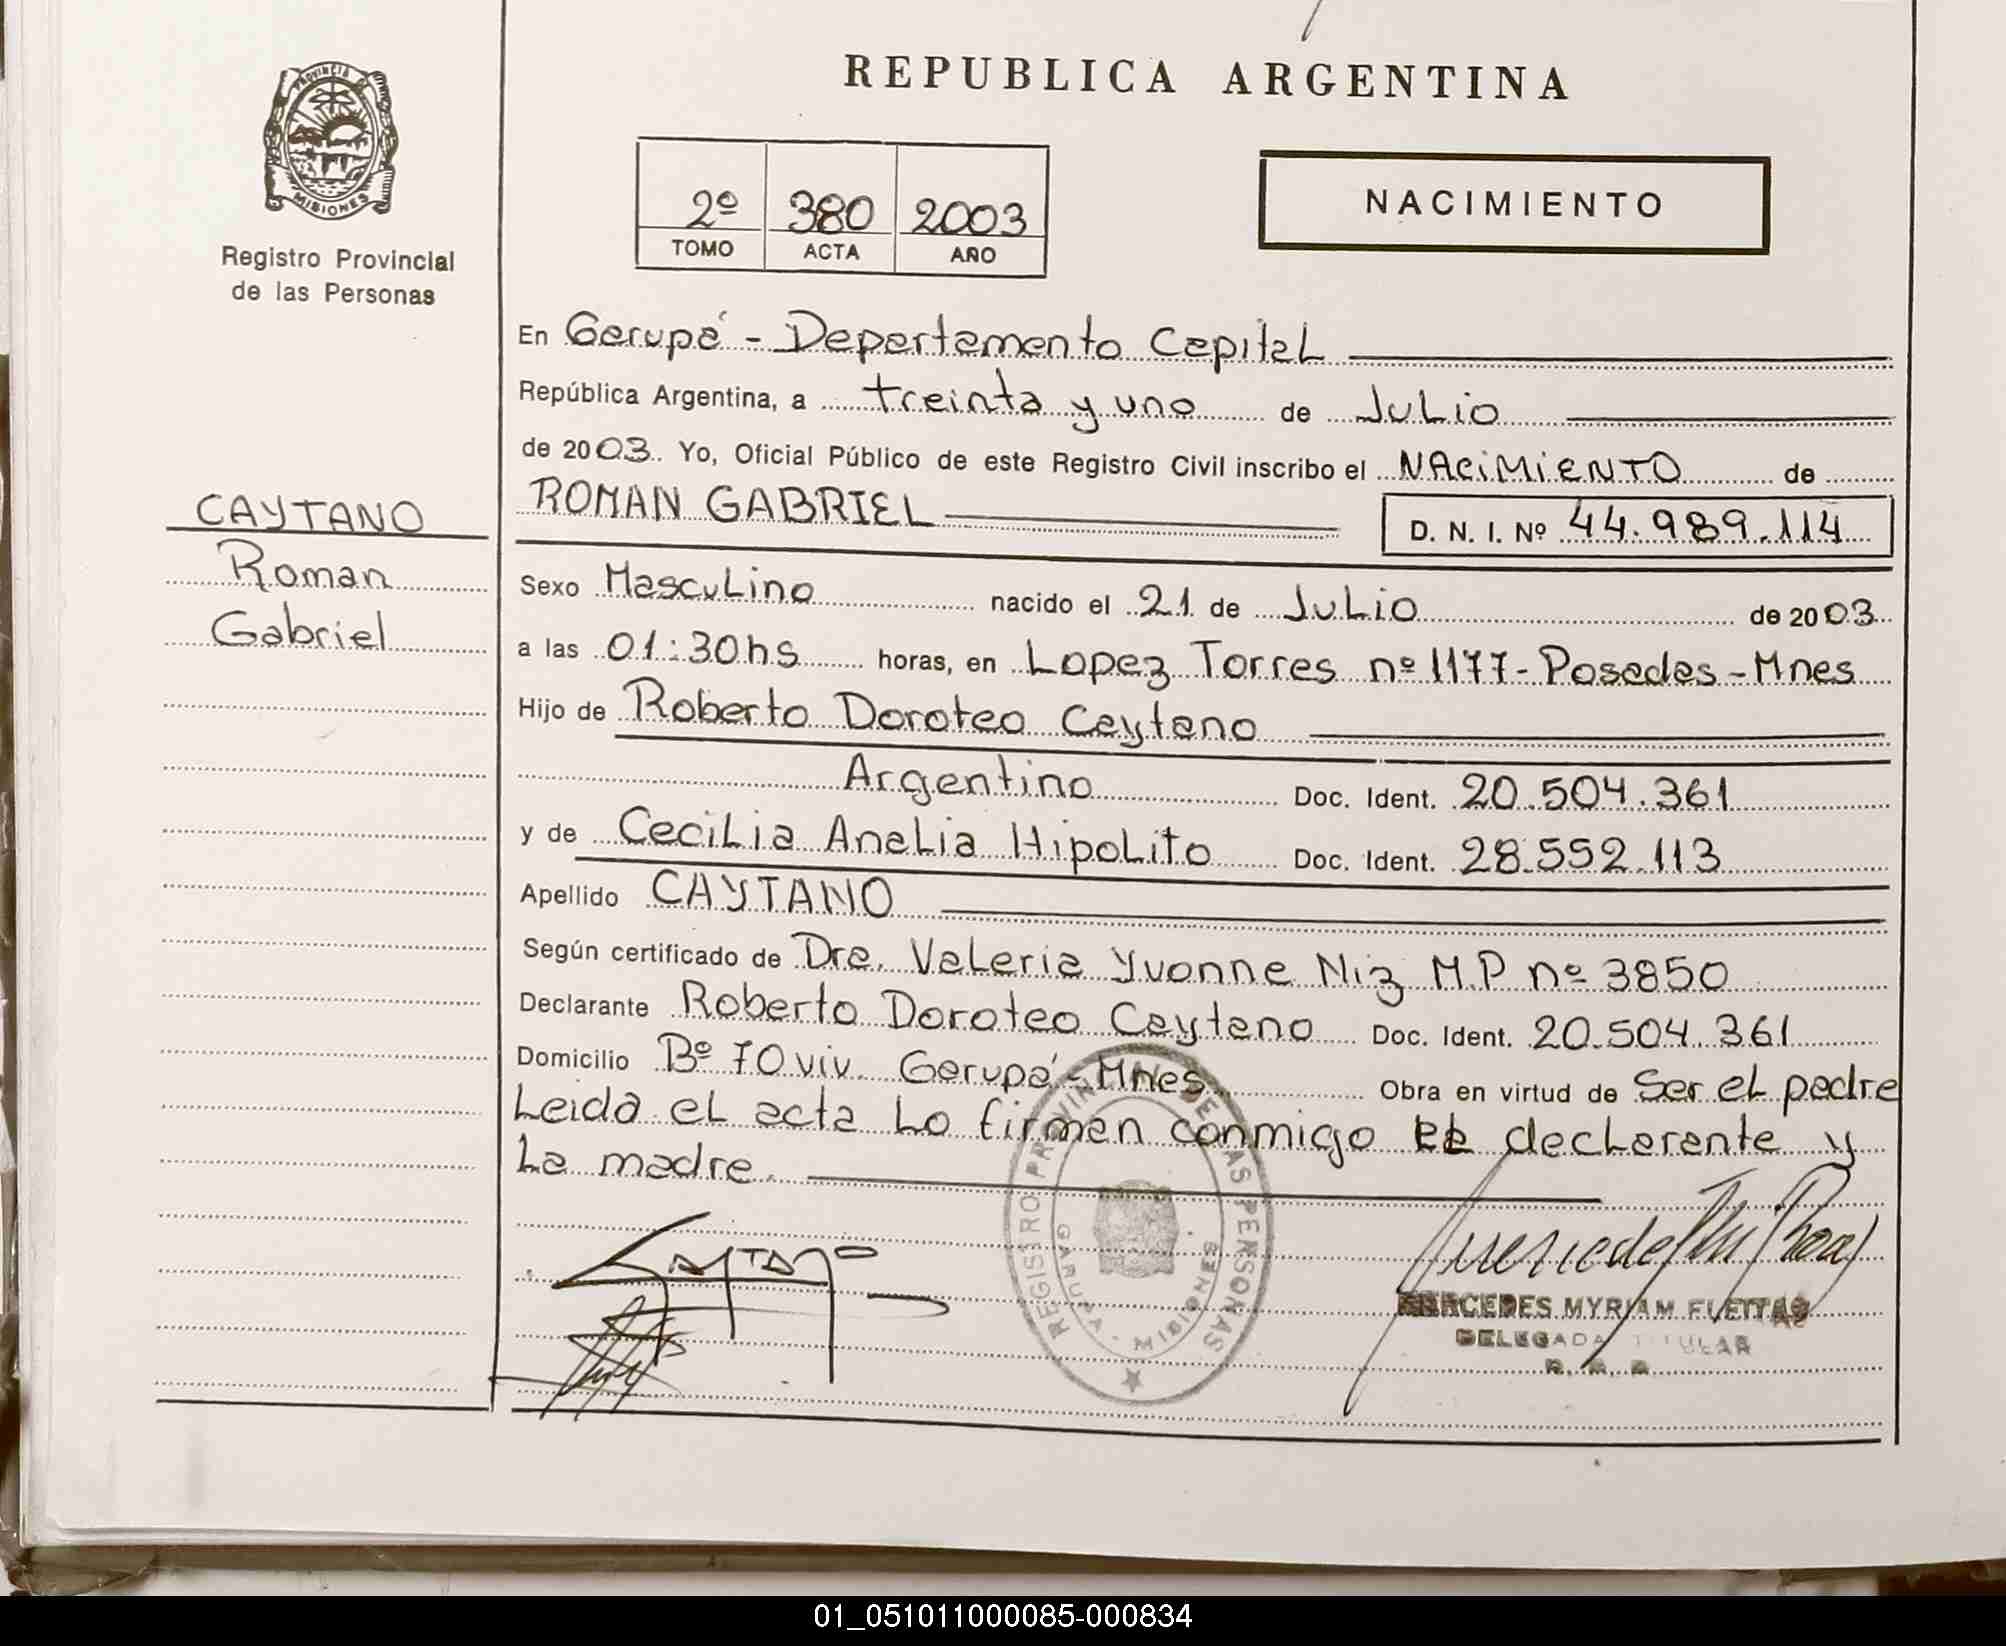 REPUBLICA ARGENTINA
PROVINCIA DE
MISIONES
Registro Provincial
de las Personas
2º 380 2003
TOMO ACTA AÑO
NACIMIENTO
En Garupá - Departamento Capital
República Argentina, a treinta y uno de Julio
de 2003. Yo, Oficial Público de este Registro Civil inscribo el NACIMIENTO de
ROMAN GABRIEL D. N. I. Nº 44.989.114
CAYTANO
Roman
Gabriel
Sexo Masculino nacido el 21 de Julio de 2003
a las 01:30hs horas, en Lopez Torres nº 1177-Posadas-Mnes
Hijo de Roberto Doroteo Caytano
Argentino Doc. Ident. 20.504.361
y de Cecilia Analia Hipolito Doc. Ident. 28.552.113
Apellido CAYTANO
Según certificado de Dra. Valeria Yvonne Niz M.P nº 3850
Declarante Roberto Doroteo Caytano Doc. Ident. 20.504.361
Domicilio Bº 70 viv. Garupá-Mnes Obra en virtud de Ser el padre
Leida el acta lo firman conmigo el declarante y
La madre.
REGISTRO PROVINCIAL DE LAS PERSONAS
GARUPA - MISIONES
MERCEDES MYRIAM FLEITAS
DELEGADA TITULAR
01_051011000085-000834